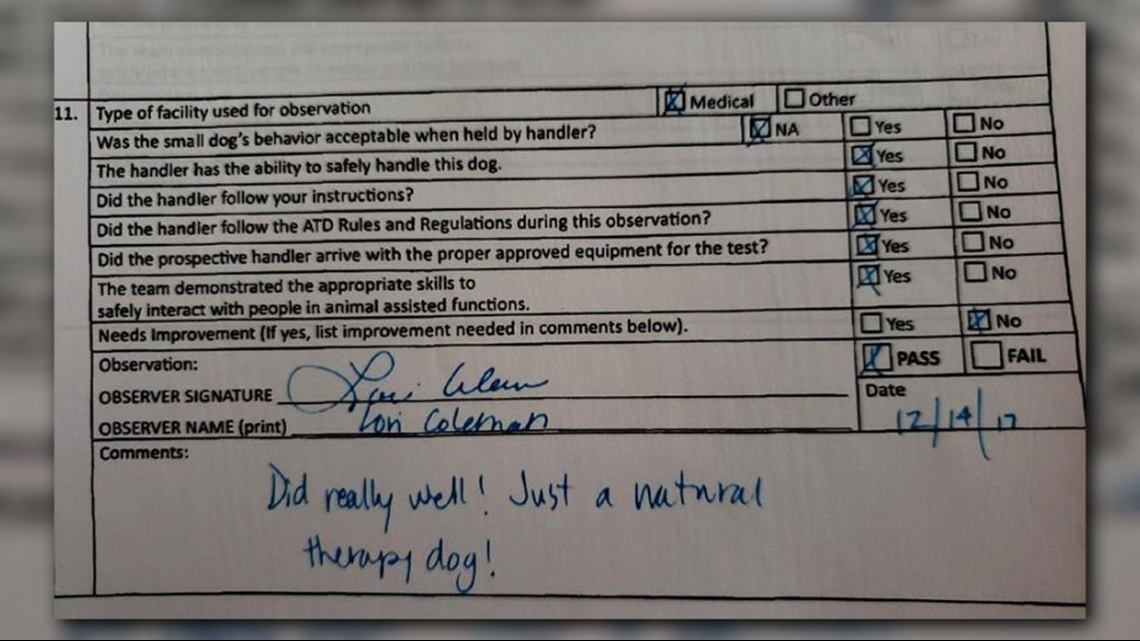 11. Type of facility used for observation ☒ Medical ☐ Other
Was the small dog's behavior acceptable when held by handler? ☒ NA ☐ Yes ☐ No
The handler has the ability to safely handle this dog. ☒ Yes ☐ No
Did the handler follow your instructions? ☒ Yes ☐ No
Did the handler follow the ATD Rules and Regulations during this observation? ☒ Yes ☐ No
Did the prospective handler arrive with the proper approved equipment for the test? ☒ Yes ☐ No
The team demonstrated the appropriate skills to ☒ Yes ☐ No
safely interact with people in animal assisted functions.
Needs Improvement (If yes, list improvement needed in comments below). ☐ Yes ☒ No
Observation: ☒ PASS ☐ FAIL
OBSERVER SIGNATURE Lori Coleman
Date
OBSERVER NAME (print) Lori Coleman
12/14/17
Comments:
Did really well! Just a natural
therapy dog!